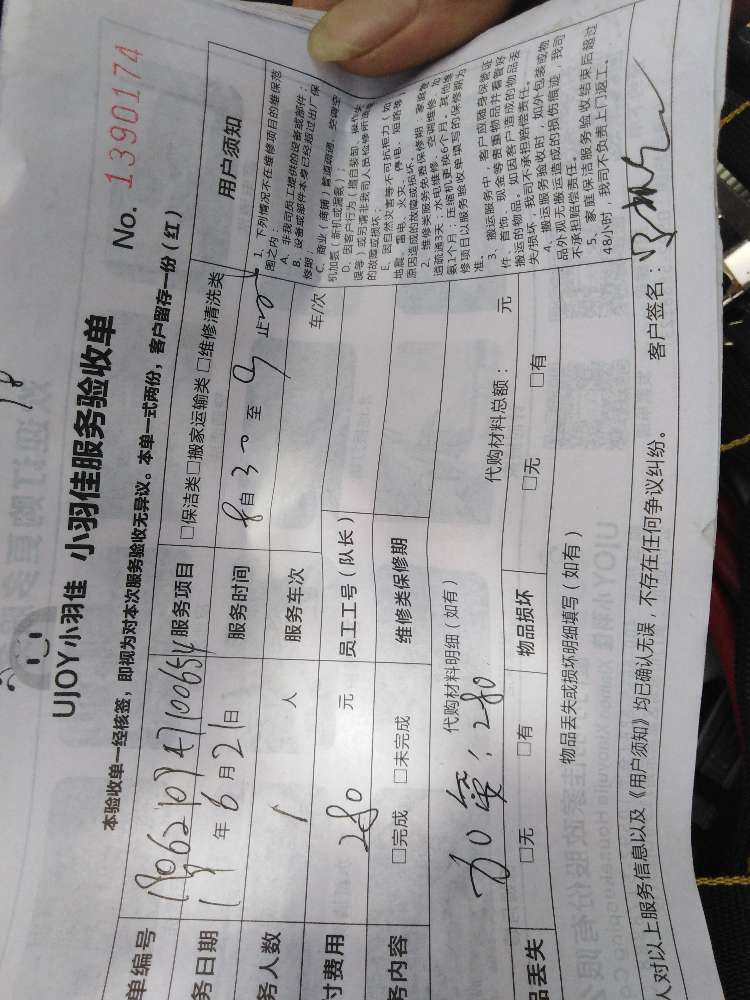 UJOY小羽佳 小羽佳服务验收单
No. 1390174
本验收单一经核签，即视为对本次服务验收无异议。本单一式两份，客户留存一份（红）
单编号 服务项目 □保洁类□搬家运输类 □维修清洗类 用户须知
务日期 年6月21日 服务时间 8自30至9止
务人数 1 人 服务车次 车/次
付费用 280 元 员工工号（队长）
务内容 □完成 □未完成 维修类保修期
1、下列情况不在维修项目的维保范
围之内：
A、非我司员工提供的设备或部件；
B、设备或部件本身已经超过出厂保
修期
C、商业（商铺）管道疏通、空调空
机加氨（新机或漏氨）；
D、因客户行为（擅自装卸、操作失
误等）或另请非我司人员检修所造
的故障或损坏。
E、因自然灾害等不可抗拒力（如
地震、雷电、火灾、停电、短路等）
原因造成的故障或损坏。
2、维修类服务免费保修期：家庭管
道疏通3天；水电维修、空调维修、加
氨1个月；压缩机更换6个月。其他维
修项目以服务验收单填写的保修期为
准。
3、搬运服务中，客户应随身保管证
件、首饰、现金等贵重物品并看管好
搬运的物品，如因客户造成的物品丢
失/损坏，我司不承担赔偿责任。
4、搬运服务验收时，如外包装或物
品外观无搬运造成的损伤痕迹，我司
不承担赔偿责任。
5、家庭保洁服务验收结束后超过
48小时，我司不负责上门返工。
代购材料明细（如有） 代购材料总额： 元
280
品丢失 □无 □有 物品损坏 □无 □有
物品丢失或损坏明细填写（如有）
人对以上服务信息以及《用户须知》均已确认无误，不存在任何争议纠纷。 客户签名：